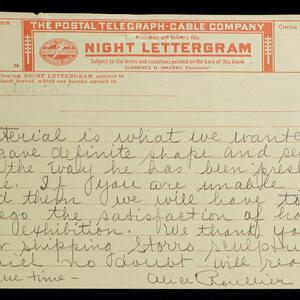 THE POSTAL TELEGRAPH-CABLE COMPANY
NIGHT LETTERGRAM
Subject to the terms and conditions printed on the back of this blank
CLARENCE H. MACKAY, President
following NIGHT LETTERGRAM, subject to
back hereof, which are hereby agreed to.
terial is what we wante
gave definite shape and pe
the way he has been pres
e. If you are unable
d them we will have to
ego the satisfaction of ho
exhibition. We thank yo
r shipping Storrs sculptu
ich no doubt will rea
ue time —
Alice Roullier